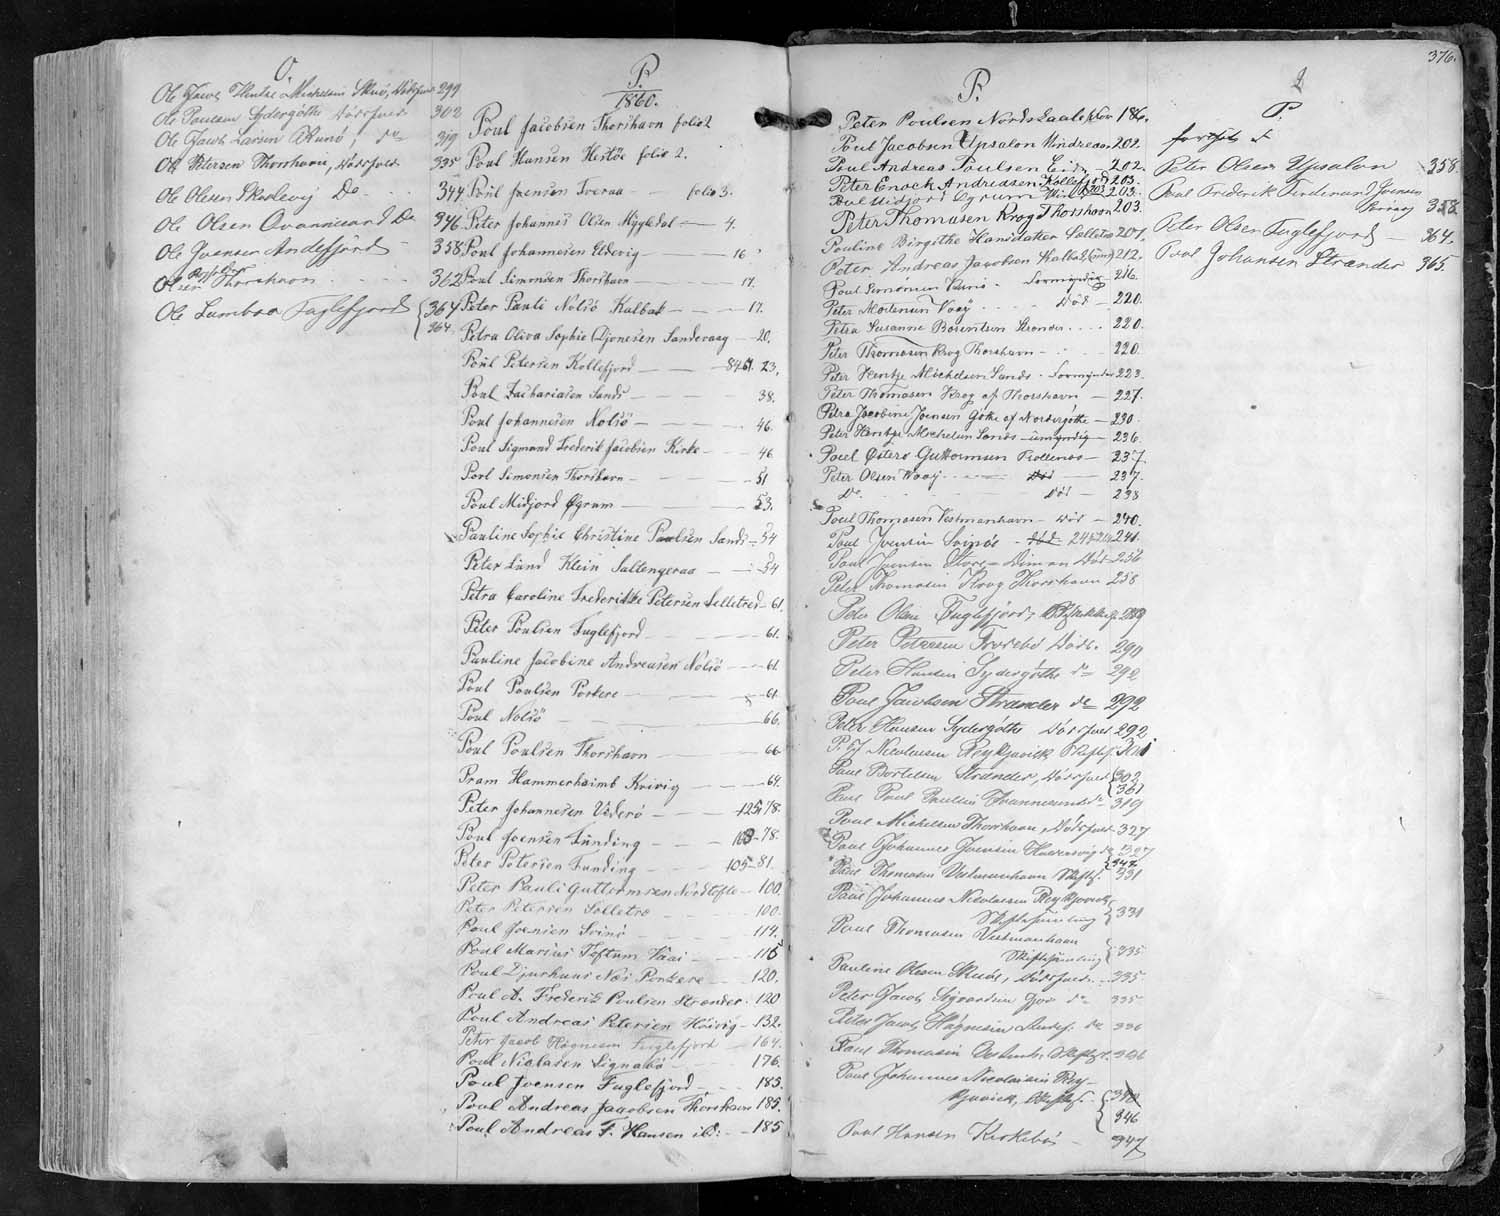 O.
Ole Jacob Hentze Michelsen Skuø, Dødsfald 299
Ole Paulsen Sydergøthe Dødsfald 302
Ole Jacob Larsen Kunø, do 319
Ole Petersen Thorshavn, Dødsfald 335
Ole Olsen Skaalevig Do 344
Ole Olsen Qvannesund Do 346
Ole Joensen Andefjord 358
Olsen Thorshavn 362
Ole Lambaa Fuglefjord 364
364.
P.
1860.
Poul Jacobsen Thorshavn folio 2
Poul Hansen Hestøe folio 2.
Poul Joensen Tveraa folio 3.
Peter Johannes Olsen Myggledal 4.
Poul Johannesen Eldevig 16
Poul Simonsen Thorshavn 17.
Peter Pauli Nolsö Kalbak 17.
Petra Oliva Sophie Djonesen Sandevaag 20.
Poul Petersen Kollefjord 84 61. 23.
Poul Zachariasen Sands 38.
Poul Johannesen Nolsö 46.
Poul Sigmund Frederik Jacobsen Kirke 46
Poul Simonsen Thorshavn 51
Poul Midjord Øgrum 53.
Pauline Sophie Christine Paulsen Sands 54
Peter Lund Klein Saltengeraa 54
Petra Caroline Frederikke Petersen Selletræd 61.
Peter Poulsen Fuglefjord 61.
Pauline Jacobine Andreasen Nolsö 61.
Poul Poulsen Porkere 61
Poul Nolsö 66.
Poul Poulsen Thorshavn 66
Pram Hammerhaimb Kvivig 64.
Peter Johannesen Viderö 125 78.
Poul Joensen Funding 103 78.
Peter Petersen Funding 105 81.
Peter Pauli Guttormsen Nordtofte 100.
Peter Petersen Selletræ 100.
Poul Joensen Svinö 114.
Poul Marius Toftum Vaai 115
Poul Djurhuus Næs Porkere 120.
Poul A. Frederik Poulsen Strænder 120
Poul Andreas Petersen Hóivig 132.
Peter Jacob Høgnesen Fuglefjord 164.
Poul Niclasen Signabö 176.
Poul Joensen Fuglefjord 183.
Poul Andreas Jacobsen Thorshavn 185.
Poul Andreas F. Hansen ibd: 185
P.
Peter Poulsen Nordskaale 186.
Poul Jacobsen Upsalon Mindreaa. 202.
Poul Andreas Poulsen Eide 202.
Peter Enock Andreasen Kollefjord 203.
Poul Midjord Øgrum 203 203.
Peter Thomasen Krog Thorshavn 203.
Pauline Birgithe Hansdatter Selletræ 207.
Peter Andreas Jacobsen Kalbak 212.
Poul Simonsen Formyndig 216.
Peter Mortensen Vaay Død 220.
Petra Susanne Bærentsen Strender 220.
Peter Thomasen Krog Thorshavn 220
Peter Hentze Michelsen Sands Formynder 223.
Peter Thomasen Krog af Thorshavn 227.
Petra Jacobine Joensen Gøthe af Nordergøthe 230.
Peter Hentze Michelsen Sands umyndig 236.
Poul Østerø Guttormsen Trollenæs 237.
Peter Olsen Waay Død 237.
Do. Død 238
Poul Thomasen Vestmanhavn Død 240.
Poul Joensen Svinöe Død 241.
Poul Joensen Store-Dimon Död 256
Peter Thomasen Krog Thorshavn 258
Peter Olsen Fuglefjord, 289
Peter Petersen Dödsf. 290
Peter Hansen Sydergøthe do 292
Poul Jacobsen Strænder do 292
Peter Hansen Sydergøthe Dødsfald 292
P. Nicolaisen Reykjavick Skiftes.
Poul Bertelsen Strænder, Dødsfald 302
361
Poul Poul Poulsen do 319
Poul Michelsen Thorshavn, Dødsfald 327
Poul Johannes Joensen Haldersvig do 327
342
Poul Thomasen Vestmanhavn Skiftes. 331
Poul Johannes Nicolaisen Reykjavick
Skiftesamling 331
Poul Thomasen Vestmanhavn
Skiftesamling 335
Pauline Olesen Skuøe, Dødsfald 335
Peter Jacob Sigvardsen Gjov do 335
Peter Jacob Høgnesen Andef. do 336
Poul Thomasen Vestmh. Skiftes. 346
Poul Johannes Nicolaisen Rey-
kjavick, Skiftes. 340
346
Poul Hansen Kirkebö 347
376.
P.
fortsat
Peter Olsen Upsalon 358.
Poul Frederik Ferdinand Joensen
358.
Peter Olsen Fuglefjord 364.
Poul Johansen Strænder 365.